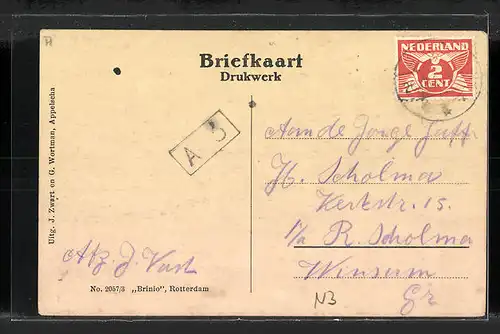 Briefkaart
Drukwerk
NEDERLAND
2
CENT
A 3
Aan de Jonge Juffr
H. Scholma
Kerkstr. 15.
p/a R. Scholma
Winsum
Gr
Afz. J. Vast
Uitg. J. Zwart en G. Wortman, Appelscha
No. 2057/3 „Brinio", Rotterdam
N3